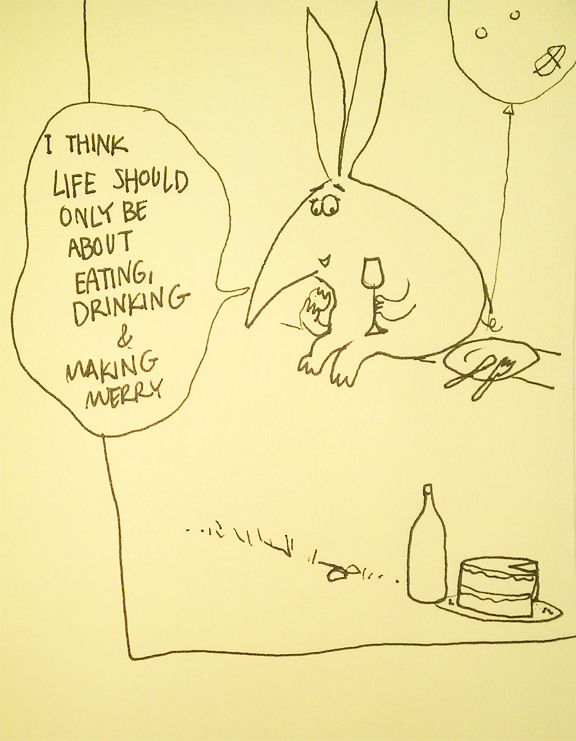 I THINK
LIFE SHOULD
ONLY BE
ABOUT
EATING,
DRINKING
&
MAKING
MERRY